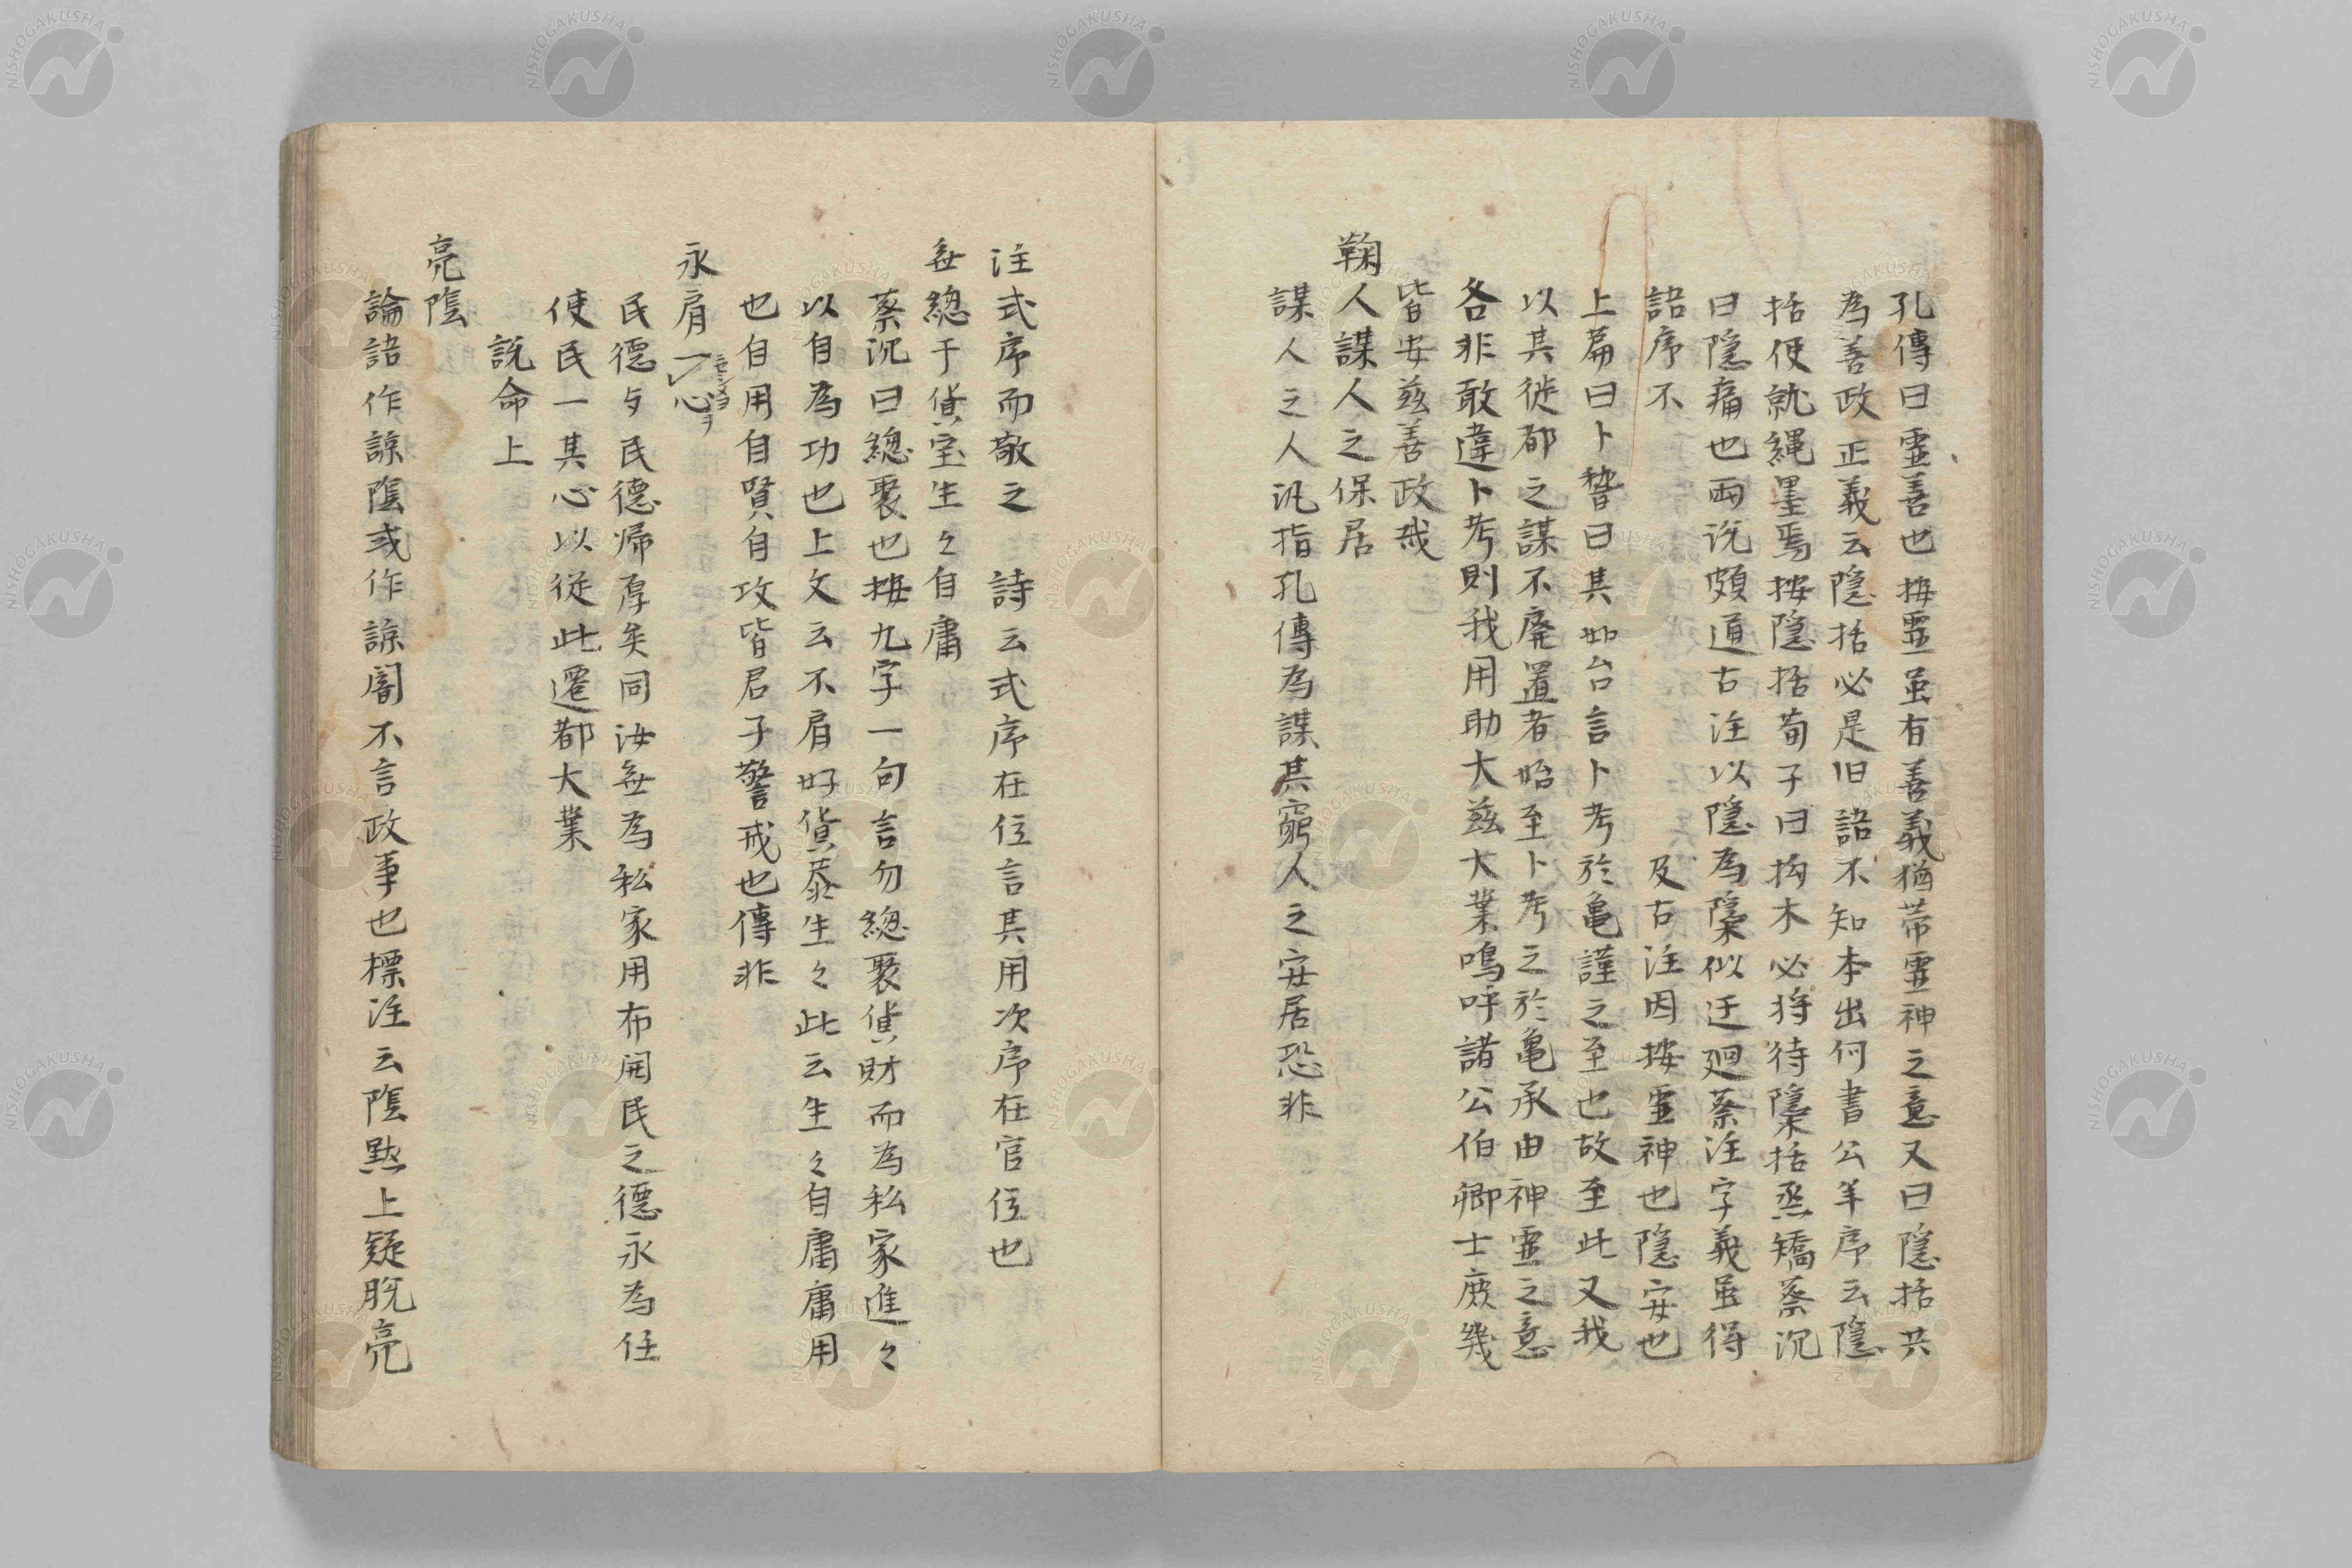 孔傳曰霊善也按霊虽有善義猶帯霊神之意又曰隠括共
為善政正義云隠括必是旧語不知本出何書公羊序云隠
括使就縄墨焉按隠括荀子曰拘木必将待隱括烝矯蔡沉
曰隠痛也両説頗通古注以隠為隱似迂廻蔡注字義虽得
語序不及古注因按霊神也隠安也
上篇曰卜稽曰其如台言卜考於亀謹之至也故至此又我
以其徙都之謀不廃置者始至卜考之於亀承由神霊之意
各非敢違卜考則我用助大茲大業鳴呼諸公伯卿士庶幾
皆安茲善政哉
鞠人謀人之保居
謀人之人汎指孔傳為謀其窮人之安居恐非
注式序而敬之 詩云式序在位言其用次序在官位也
無總于貨宝生々自庸
蔡沉曰總聚也按九字一句言勿總聚貨財而為私家進々
以自為功也上文云不肩好貨恭生々此云生々自庸庸用
也自用自賢自攻皆君子警戒也傳非
永肩一心
民徳与民徳帰厚矣同汝無為私家用布闬民之徳永為任
使民一其心以従此遷都大業
説命上
亮陰
論語作諒陰或作諒闇不言政事也標注云陰黙上疑脱亮